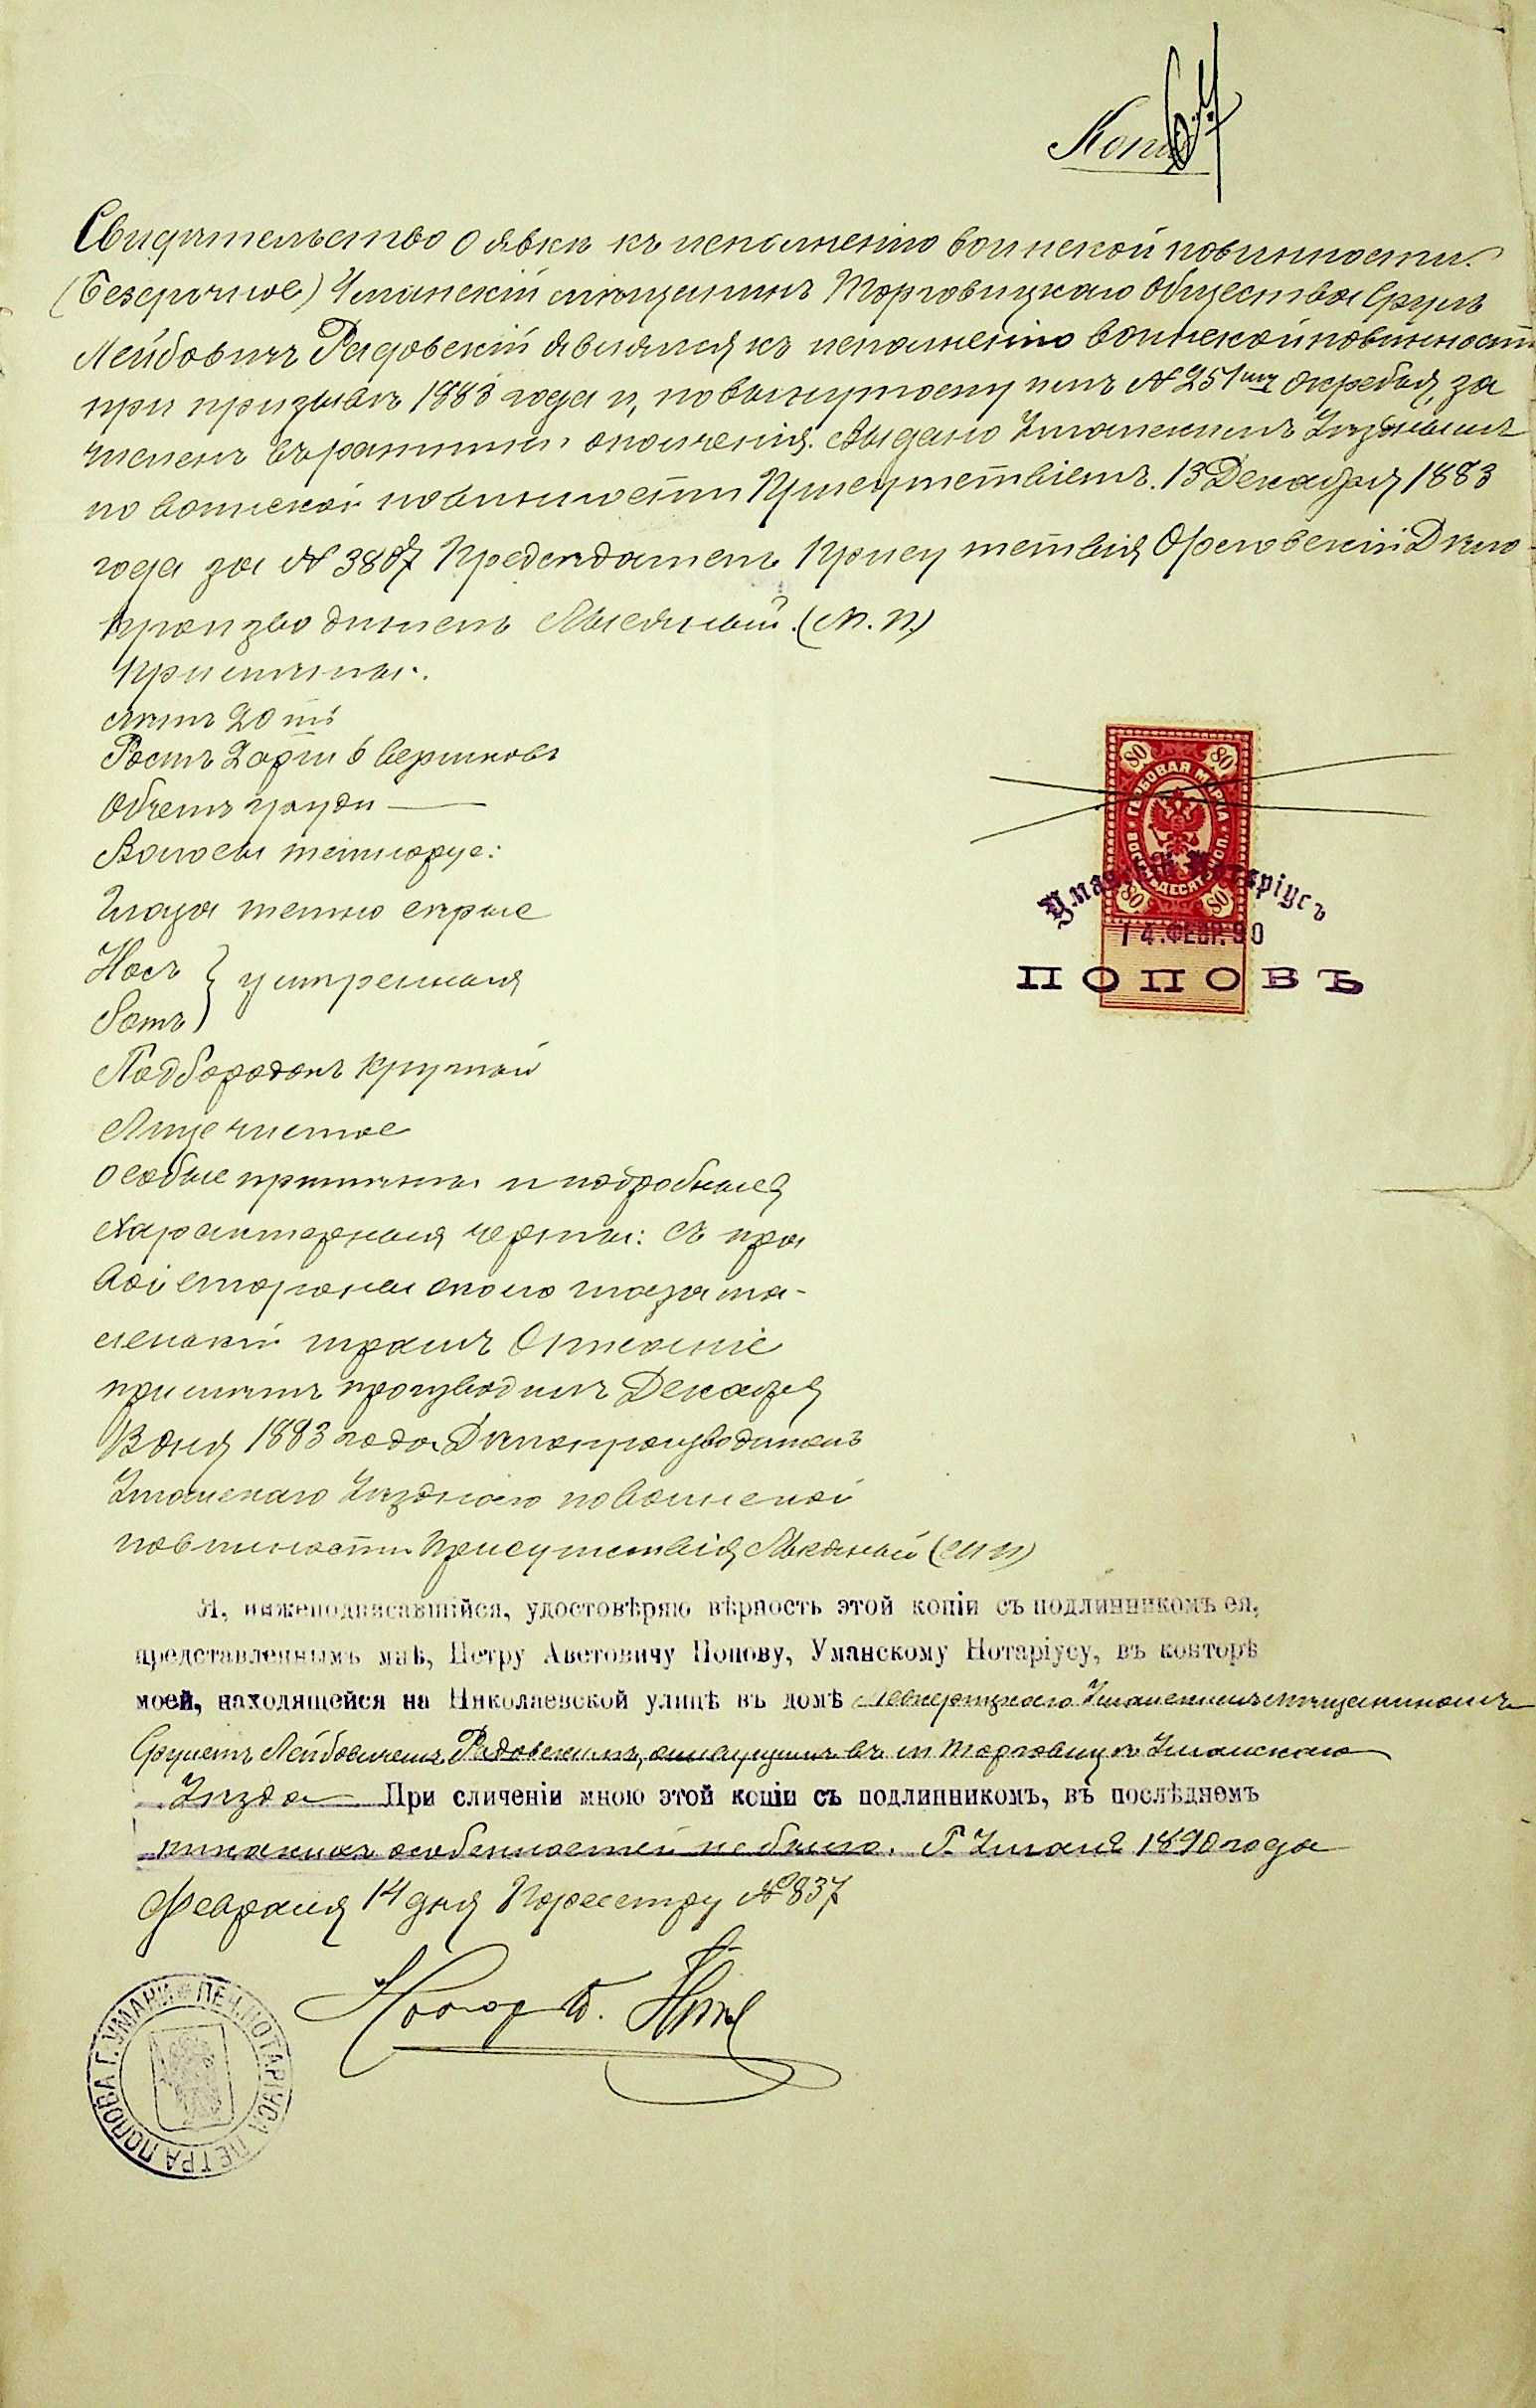 Копія
Свидѣтельство о явкѣ къ исполненію воинской повинности.
(Безсрочное) Уманскій мѣщанинъ Торговицкаго Общества Сруль
Лейбовичъ Радовскій являлся къ исполненію воинской повинности
при призывѣ 1883 года и, по вынутому имъ № 251му жребья, за
численъ въ ратники ополченія. Выдано Уманскимъ Уѣзднымъ
по воинской повинности Присутствіемъ. 13 Декабря 1883
года за № 3807 Предсѣдатель Присутствія Дѣло-
производитель (М. П.)
Примѣты.
лѣтъ 20ть
Ростъ 2 арш 6 вершковъ
Объемъ груди —
Волосы темнорус:
Глаза темно сѣрые
Носъ } умѣренныя
Ротъ
Подбородокъ круглый
Лице чистое
Особые примѣты и подробныя
характерныя черты: съ пра
вой стороны около глаза ма-
ленькій шрамъ Описаніе
примѣтъ производилъ Декабря
13 дня 1883 года Дѣлопроизводитель
Уманскаго Уѣзднаго по воинской
повинности Присутствія (М П)
Я, нижеподписавшійся, удостовѣряю вѣрность этой копіи съ подлинникомъ ея,
представленнымъ мнѣ, Петру Аветовичу Попову, Уманскому Нотаріусу, въ конторѣ
моей, находящейся на Николаевской улицѣ въ домѣ Уманскимъ мѣщаниномъ
Срулемъ Лейбовичемъ Радовскимъ, живущимъ въ м Торговицѣ Уманскаго
Уѣзда При сличеніи мною этой копіи съ подлинникомъ, въ послѣднемъ
никакихъ особенностей не было. Г. Умань 1890 года
Февраля 14 дня По реестру № 837
ГЕРБОВАЯ МАРКА
ВОСЕМЬДЕСЯТЪ КОП.
80 80 80 80
Уманскій Нотаріусъ
14. ФЕВР. 90
ПОПОВЪ
ПЕЧ. НОТАРІУСА ПЕТРА ПОПОВА Г. УМАНИ